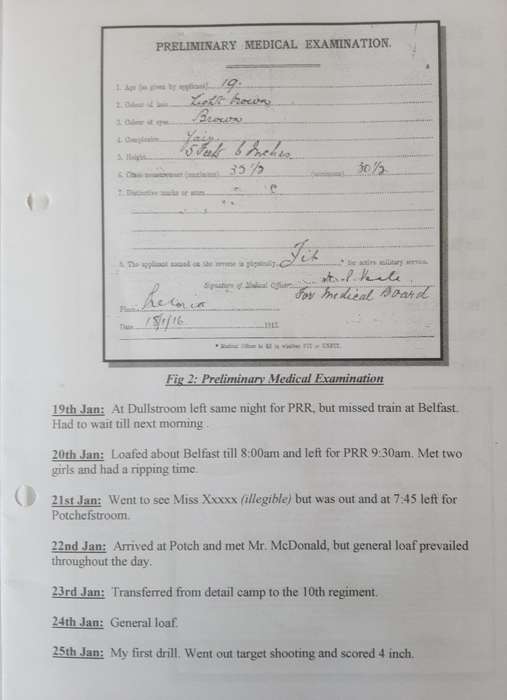 PRELIMINARY MEDICAL EXAMINATION.
1. Age (as given by applicant) 19.
2. Colour of hair Light brown
3. Colour of eyes Brown
4. Complexion Fair
5. Height 5 Feet 6 Inches
6. Chest measurement (maximum) 33 1/2 (minimum) 30 1/2
7. Distinctive marks or scars
8. The applicant named on the reverse is physically Fit * for active military service.
Signature of Medical Officer
For Medical Board
Place Pretoria
Date 18/1/16 1917.
* Medical Officer to fill in whether FIT or UNFIT.
Fig 2: Preliminary Medical Examination
19th Jan: At Dullstroom left same night for PRR, but missed train at Belfast.
Had to wait till next morning .
20th Jan: Loafed about Belfast till 8:00am and left for PRR 9:30am. Met two
girls and had a ripping time.
21st Jan: Went to see Miss Xxxxx (illegible) but was out and at 7:45 left for
Potchefstroom.
22nd Jan: Arrived at Potch and met Mr. McDonald, but general loaf prevailed
throughout the day.
23rd Jan: Transferred from detail camp to the 10th regiment.
24th Jan: General loaf.
25th Jan: My first drill. Went out target shooting and scored 4 inch.